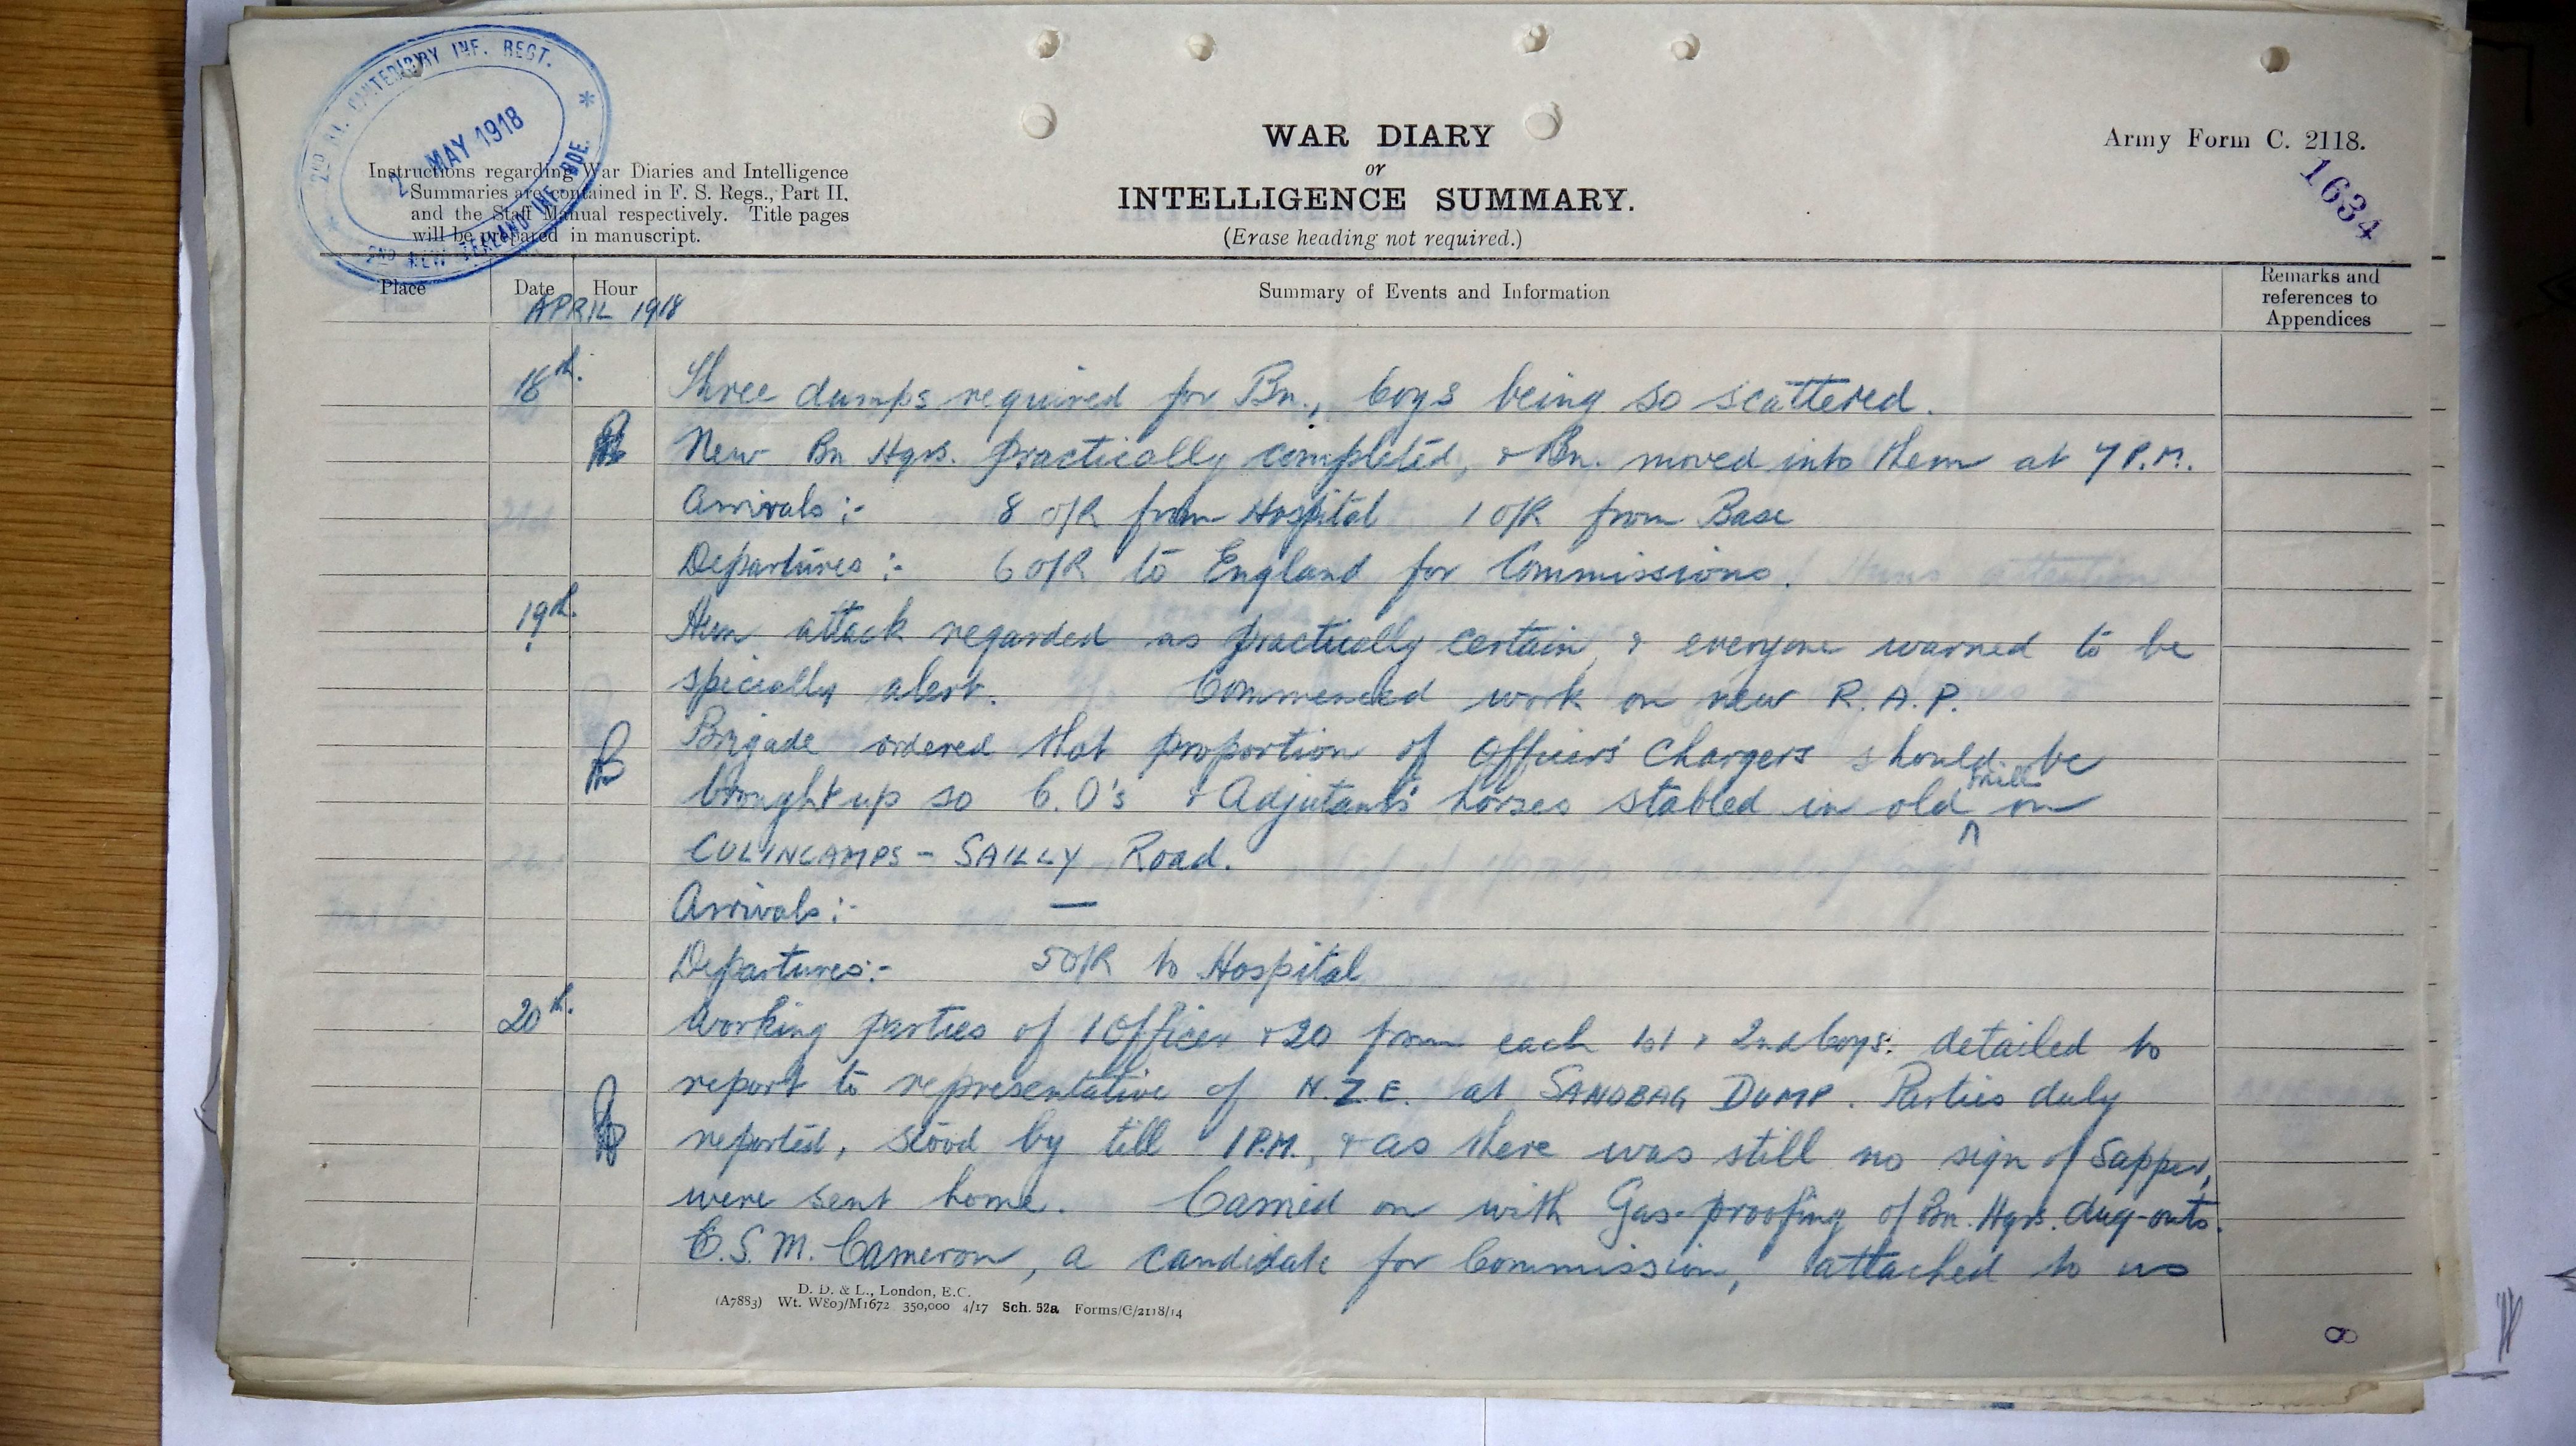 2ND BN. CANTERBURY INF. REGT.
2 MAY 1918
2ND NEW ZEALAND INF. BDE.
Instructions regarding War Diaries and Intelligence
Summaries are contained in F. S. Regs., Part II.
and the Staff Manual respectively. Title pages
will be prepared in manuscript.
WAR DIARY
or
INTELLIGENCE SUMMARY.
(Erase heading not required.)
Army Form C. 2118.
1634
Place Date Hour Summary of Events and Information Remarks and
references to
Appendices
APRIL 1918
18th. Three dumps required for Bn., Coys being so scattered.
New Bn Hqrs. practically completed, & Bn. moved into them at 7 P.M.
Arrivals :- 8 O/R from Hospital 1 O/R from Base
Departures :- 6 O/R to England for Commissions.
19th. Hun attack regarded as practically certain, & everyone warned to be
specially alert. Commenced work on new R.A.P.
Brigade ordered that proportion of Officers' Chargers should be
brought up so C.O's & Adjutants' horses stabled in old mill on
COLINCAMPS - SAILLY Road.
Arrivals :- —
Departures :- 5 O/R to Hospital
20th. Working parties of 1 Officer & 20 from each 1st & 2nd Coys: detailed to
report to representative of N.Z.E. at SANDBAG DUMP. Parties duly
reported, stood by till 1 P.M., & as there was still no sign of Sapper,
were sent home. Carried on with Gas-proofing of Bn. Hqrs. dug-outs.
C.S.M. Cameron, a candidate for Commission, attached to us
D. D. & L., London, E.C.
(A7883) Wt. W809/M1672 350,000 4/17 Sch. 52a Forms/C/2118/14
8